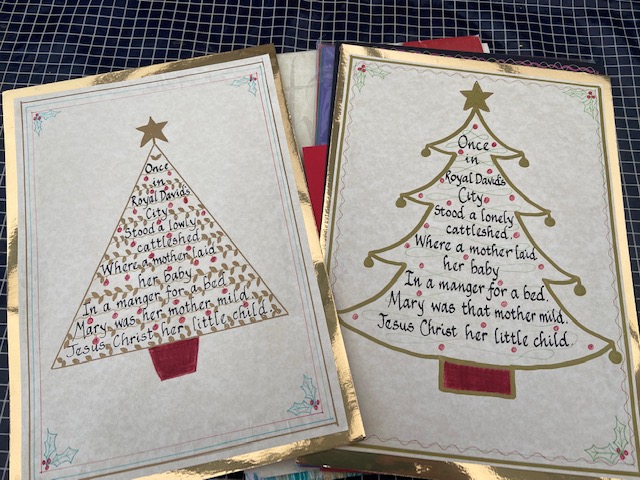 Once
in
Royal David's
City
Stood a lowly
cattleshed
Where a mother laid
her baby
In a manger for a bed.
Mary was her mother mild.
Jesus Christ her little child.
Once
in
Royal David's
City
Stood a lonely
cattleshed.
Where a mother laid
her baby
In a manger for a bed.
Mary was that mother mild.
Jesus Christ her little child.